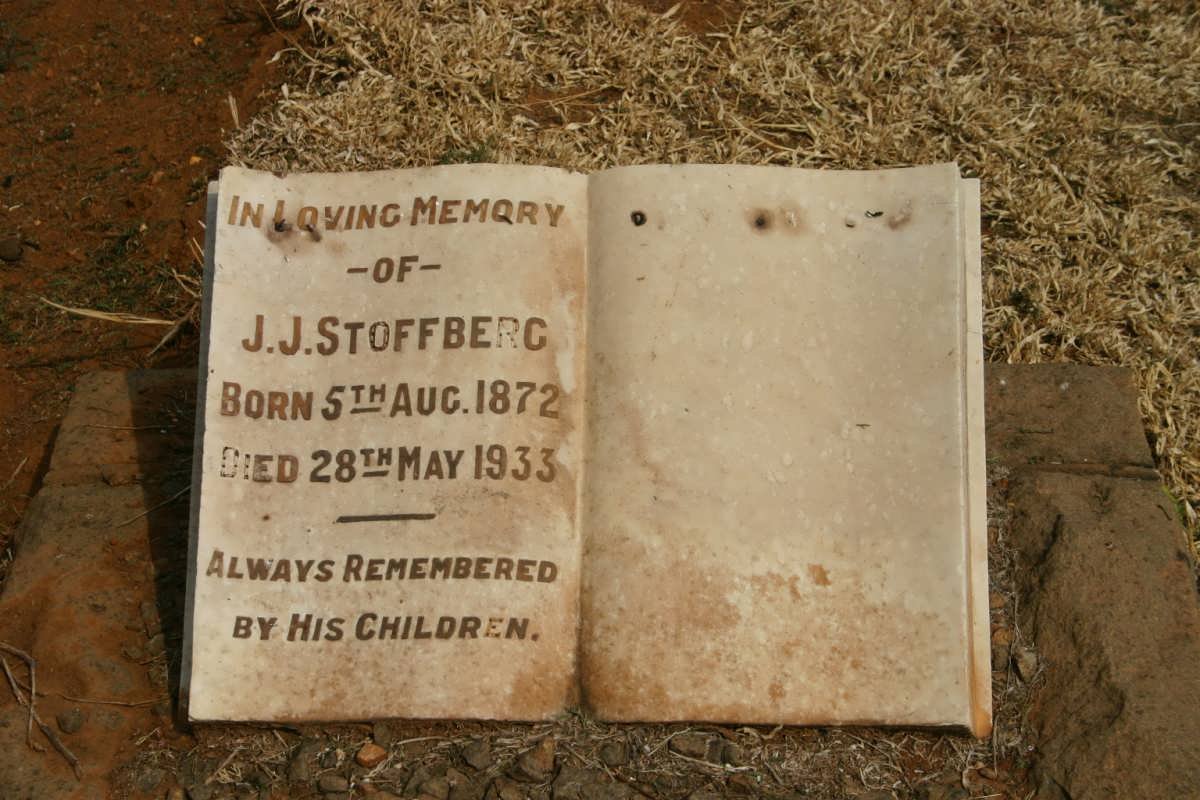 IN LOVING MEMORY
-OF-
J.J. STOFFBERG
BORN 5TH AUG. 1872
DIED 28TH MAY 1933
ALWAYS REMEMBERED
BY HIS CHILDREN.